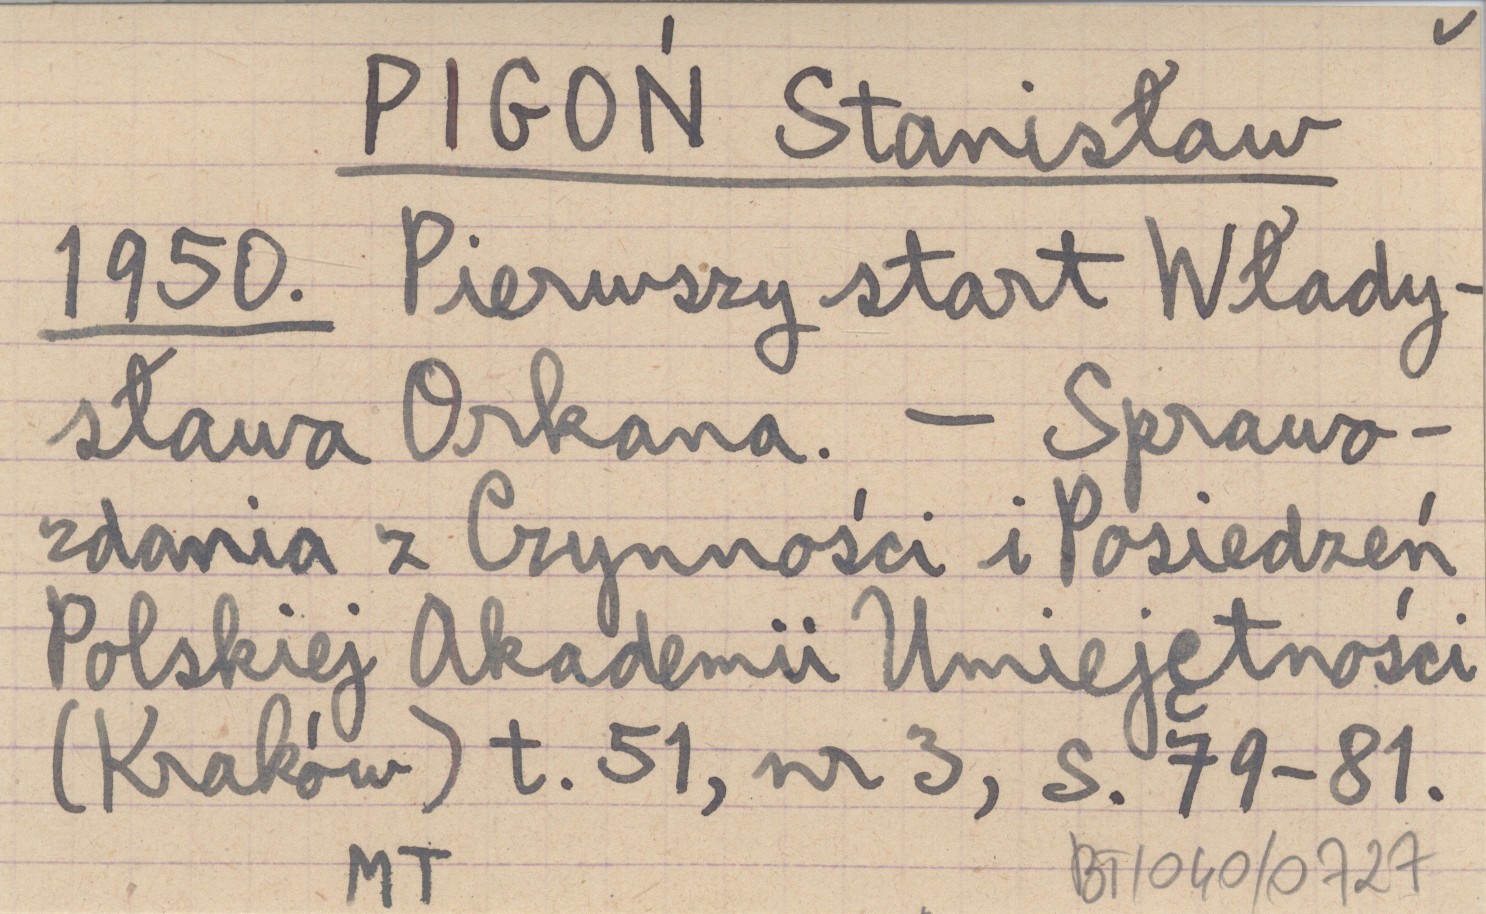 PIGOŃ Stanisław
1950. Pierwszy start Włady-
sława Orkana. — Sprawo-
zdania z Czynności i Posiedzeń
Polskiej Akademii Umiejętności
(Kraków) t. 51, nr 3, s. 79-81.
MT
BT/040/0727